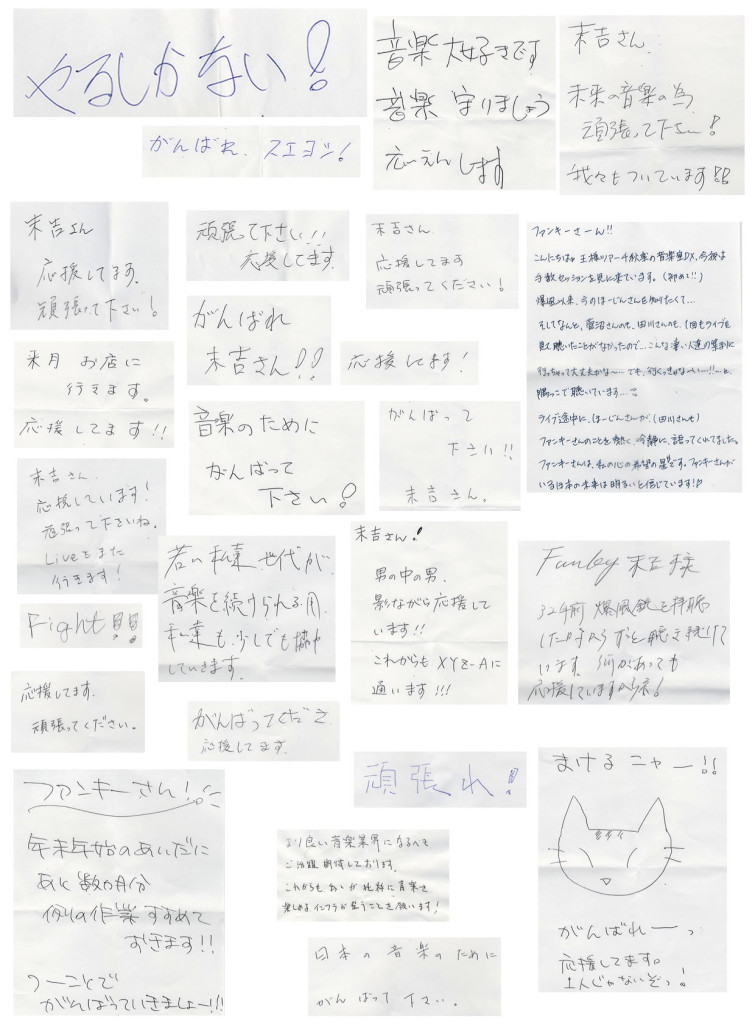 やるしかない!
がんばれ、スエヨシ!
音楽 大好きです
音楽 守りましょう
応えんします
末吉さん
未来の音楽の為
頑張って下さい!
我々もついています!!
末吉さん
応援してます。
頑張って下さい!
頑張って下さい!!
応援してます。
末吉さん
応援してます
頑張ってください!
ファンキーさーん!!
こんにちは。王様ツアーチ秋葉の音楽室DX、今夜は
手数セッションを見に来ています。(初めて!!)
爆風以来、今のほーじんさんを知りたくて…
そしてなんと、菅沼さんのも、田川さんのも、1回もライブを
見て聴いたことがなかったので…こんな凄い人達の集まりに
行っちゃって大丈夫かな〜…でも、行くっきゃな〜い…!!…と、
隅っこで聴いています…
ライブ途中に、ほーじんさんが、(田川さんも)
ファンキーさんのことを熱く、冷静に、語ってくれてました。
ファンキーさんは、私の心の希望の星です。ファンキーさんが
いる日本の未来は明るいと信じています!
がんばれ
末吉さん!!
来月 お店に
行きます。
応援してます!!
応援してます!
音楽のために
がんばって
下さい!
がんばって
下さい!!
末吉さん。
末吉さん
応援しています!
頑張って下さいね。
Liveをまた
行きます!
若い私達世代が
音楽を続けられる用
私達も少しでも協力
していきます。
末吉さん!
男の中の男、
影ながら応援して
います!!
これからも XYZ-Aに
通います!!!
Funky 末吉様
32年前 爆風銃を拝聴
した時からずっと聴き続けて
います。何があっても
応援していますから!
Fight!!!
応援してます。
頑張ってください。
がんばってくださ
応援してます。
頑張れ!
まけるニャー!!
がんばれーっ
応援してます。
1人じゃないぞっ!
ファンキーさん!
年末年始のあいだに
あと数ヶ月分
例の作業すすめて
おきます!!
つーことで
がんばっていきましょー!!!
より良い音楽業界になるべく
ご活躍期待しております。
これからもが純粋に音楽を
楽しめるインフラが整うことを願います!
日本の音楽のために
がんばって下さい。